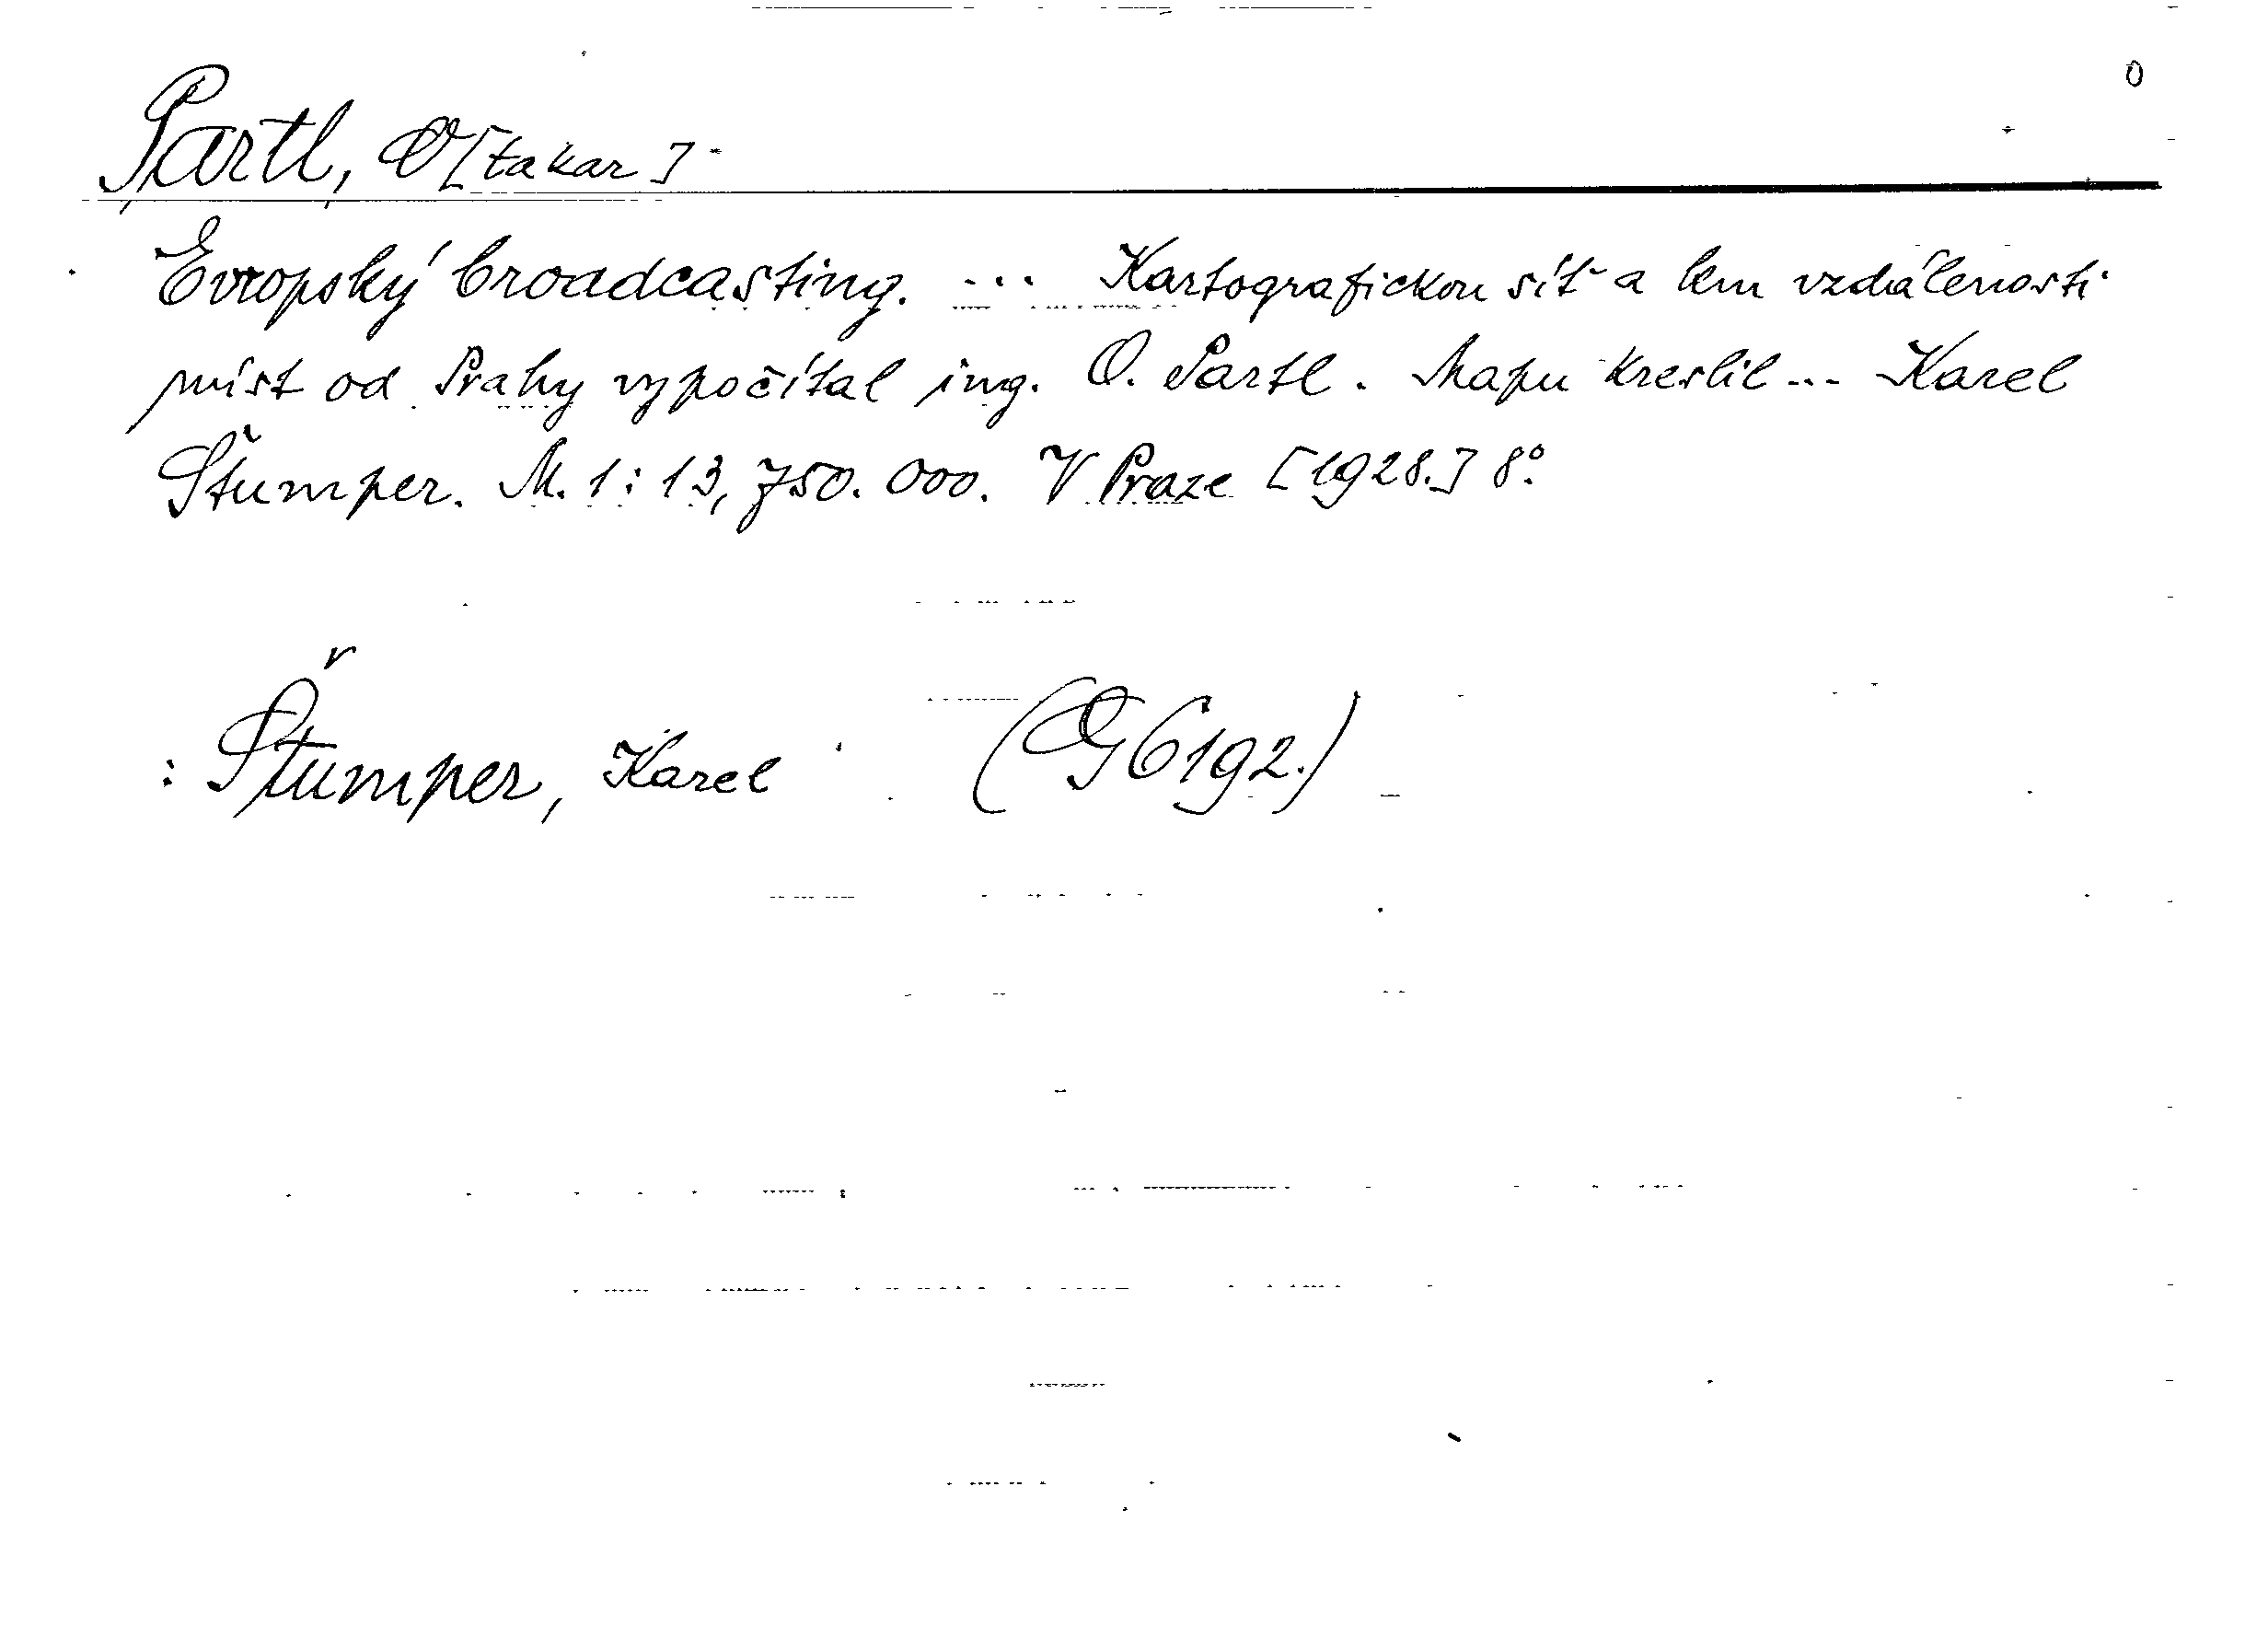 0
Partl, O[takar]
Evropský broadcasting. ... Kartografickou síť a lem vzdáleností
míst od Prahy vypočítal ing. O. Partl. Mapu kreslil ... Karel
Štumper. M. 1:13,750.000. V Praze [1928.] 8°.
: Štumper, Karel (G 6192.)